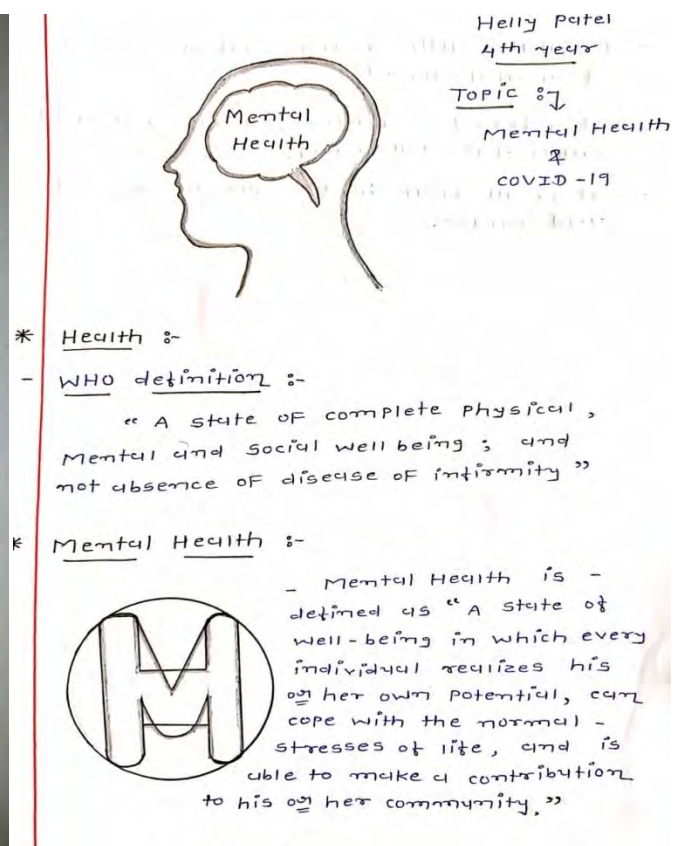 Helly Patel
4th year
Topic :↴
Mental Health
&
COVID-19
Mental
Health
* Health :-
- WHO definition :-
“ A state of complete Physical,
Mental and Social well being ; and
not absence of disease of infirmity ”
* Mental Health :-
- Mental Health is -
defined as “ A state of
well-being in which every
individual realizes his
or her own Potential, can
cope with the normal -
stresses of life, and is
able to make a contribution
to his or her community. ”
MH